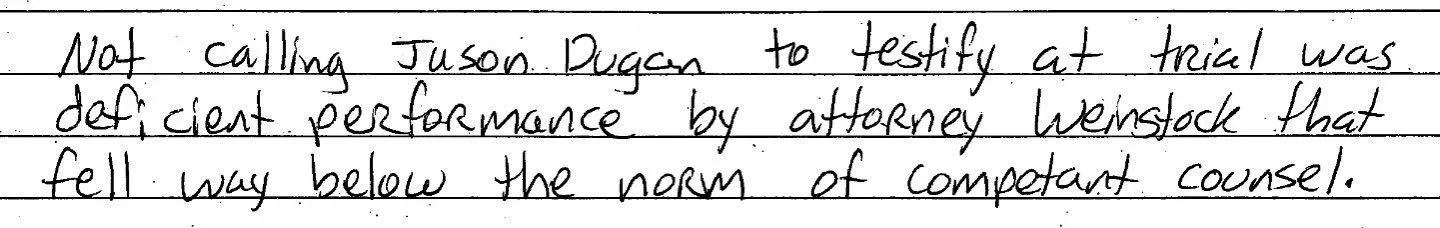 Not calling Jason Dugan to testify at trial was
deficient performance by attorney Weinstock that
fell way below the norm of competant counsel.